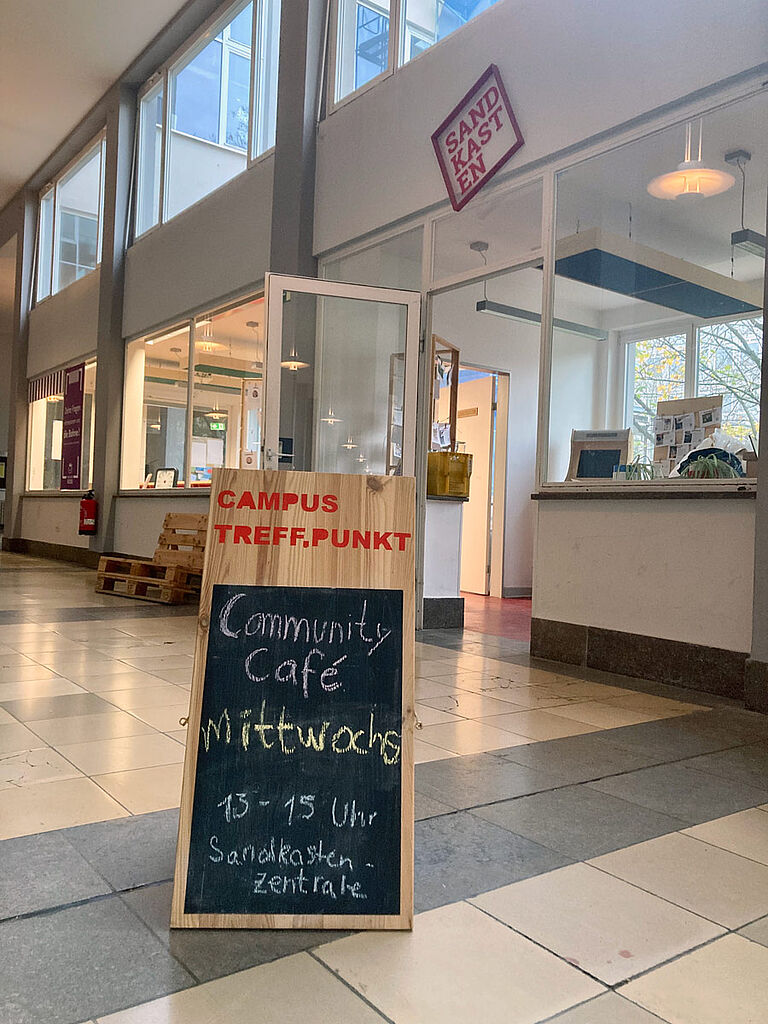 SAND
KAST
EN
CAMPUS
TREFF.PUNKT
Community
Café
Mittwochs
13-15 Uhr
Sandkasten-
zentrale